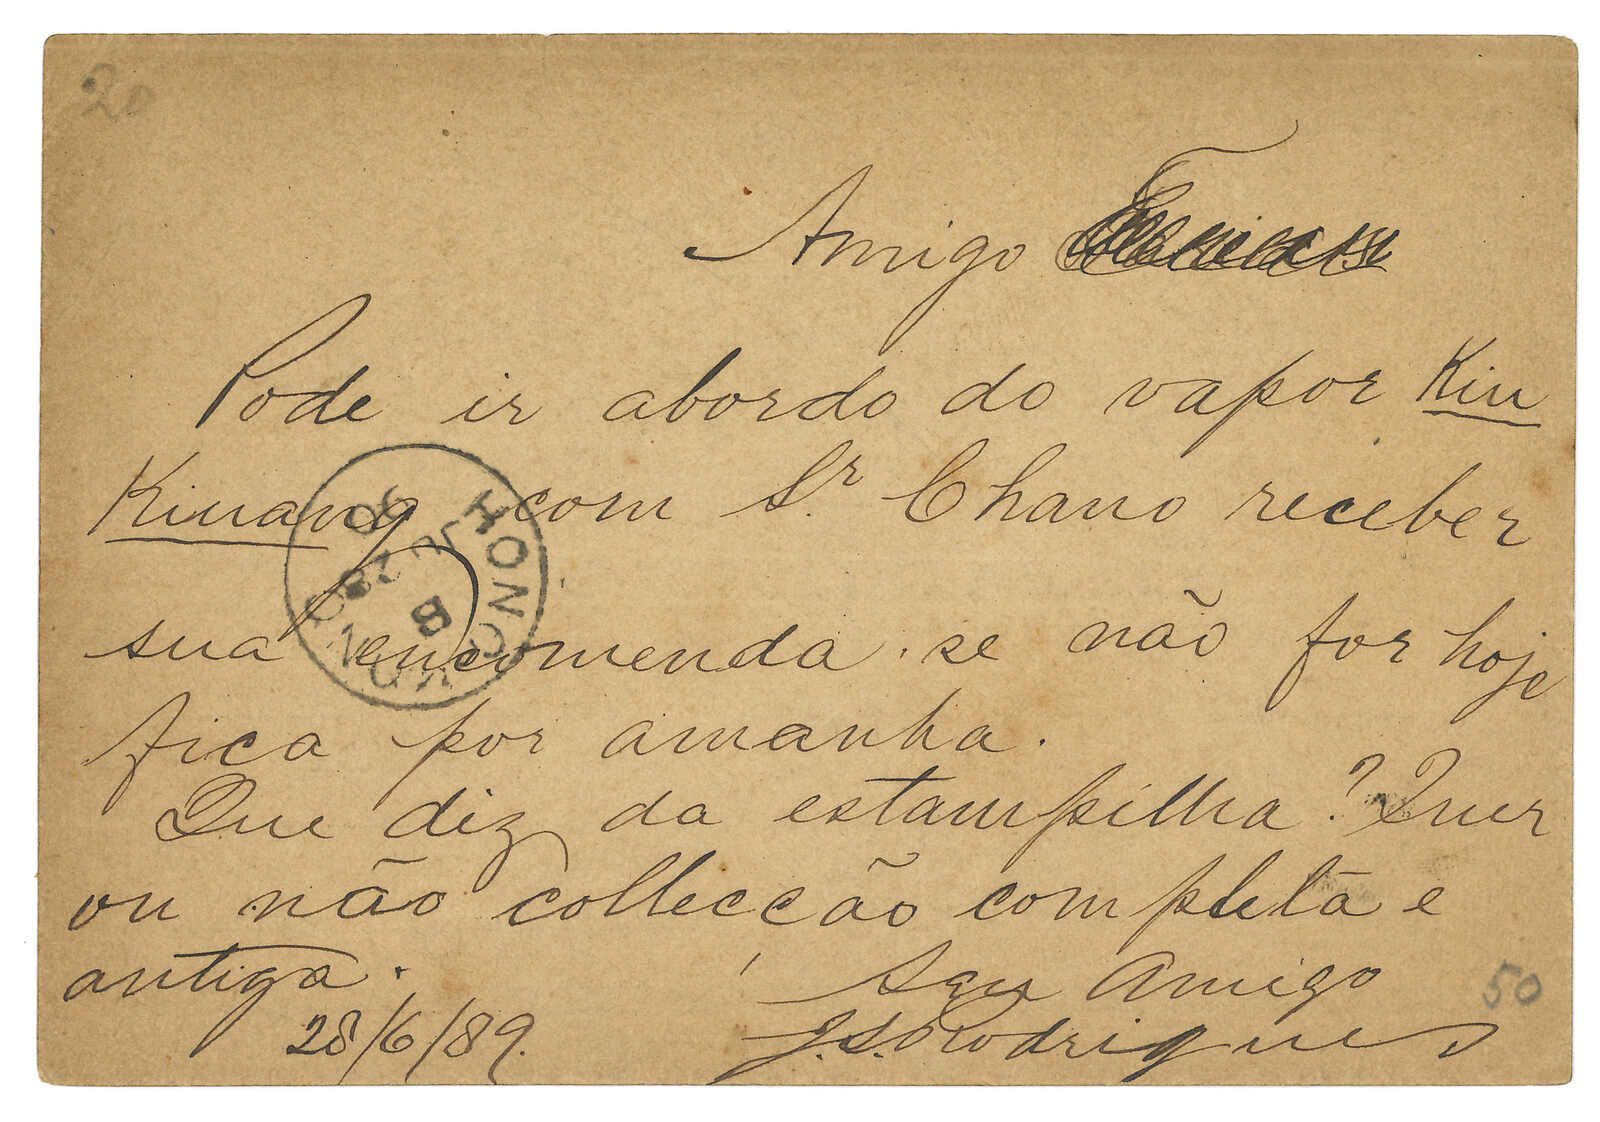 20
Amigo
Pode ir abordo do vapor Kiu
Kiuang com Sr Chano receber
sua encomenda. se não for hoje
fica por amanha.
Que diz da estampilha? Quer
ou não collecção completa e
antiga.
Seu Amigo
J.S. Rodrigues
28/6/89.
50
HONG KONG
B
JU 28
89